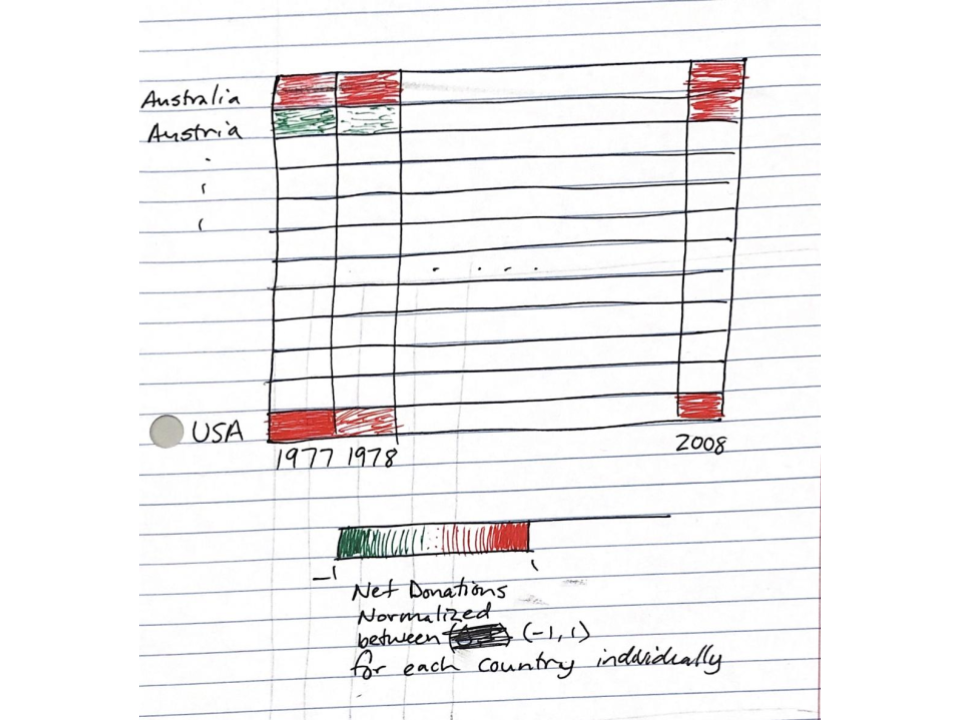 Australia
Austria
USA
1977 1978
2008
-1
1
Net Donations
Normalized
between (-1, 1)
for each country individually